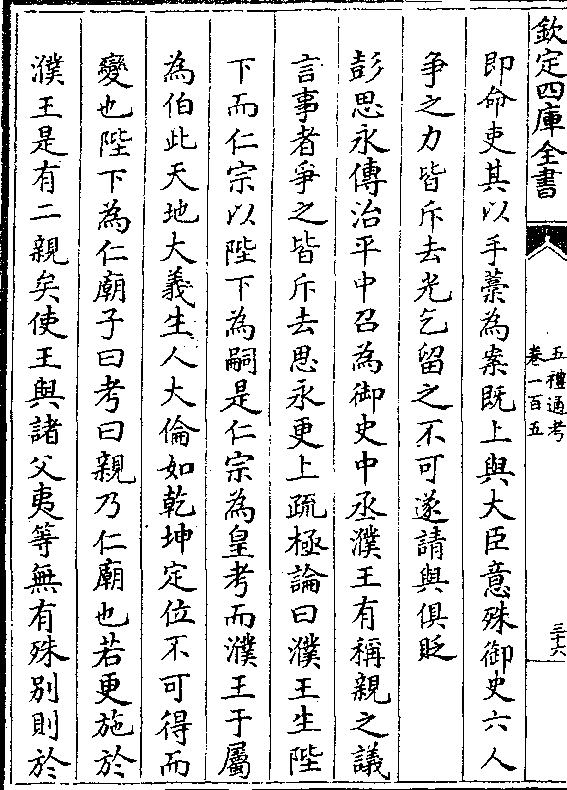 欽定四庫全書
五禮通考
卷一百五
三十六
即命吏其以手藁為案既上與大臣意殊御史六人
爭之力皆斥去光乞留之不可遂請與俱貶
彭思永傳治平中召為御史中丞濮王有稱親之議
言事者爭之皆斥去思永更上疏極論曰濮王生陛
下而仁宗以陛下為嗣是仁宗為皇考而濮王于屬
為伯此天地大義生人大倫如乾坤定位不可得而
變也陛下為仁廟子曰考曰親乃仁廟也若更施於
濮王是有二親矣使王與諸父夷等無有殊別則於